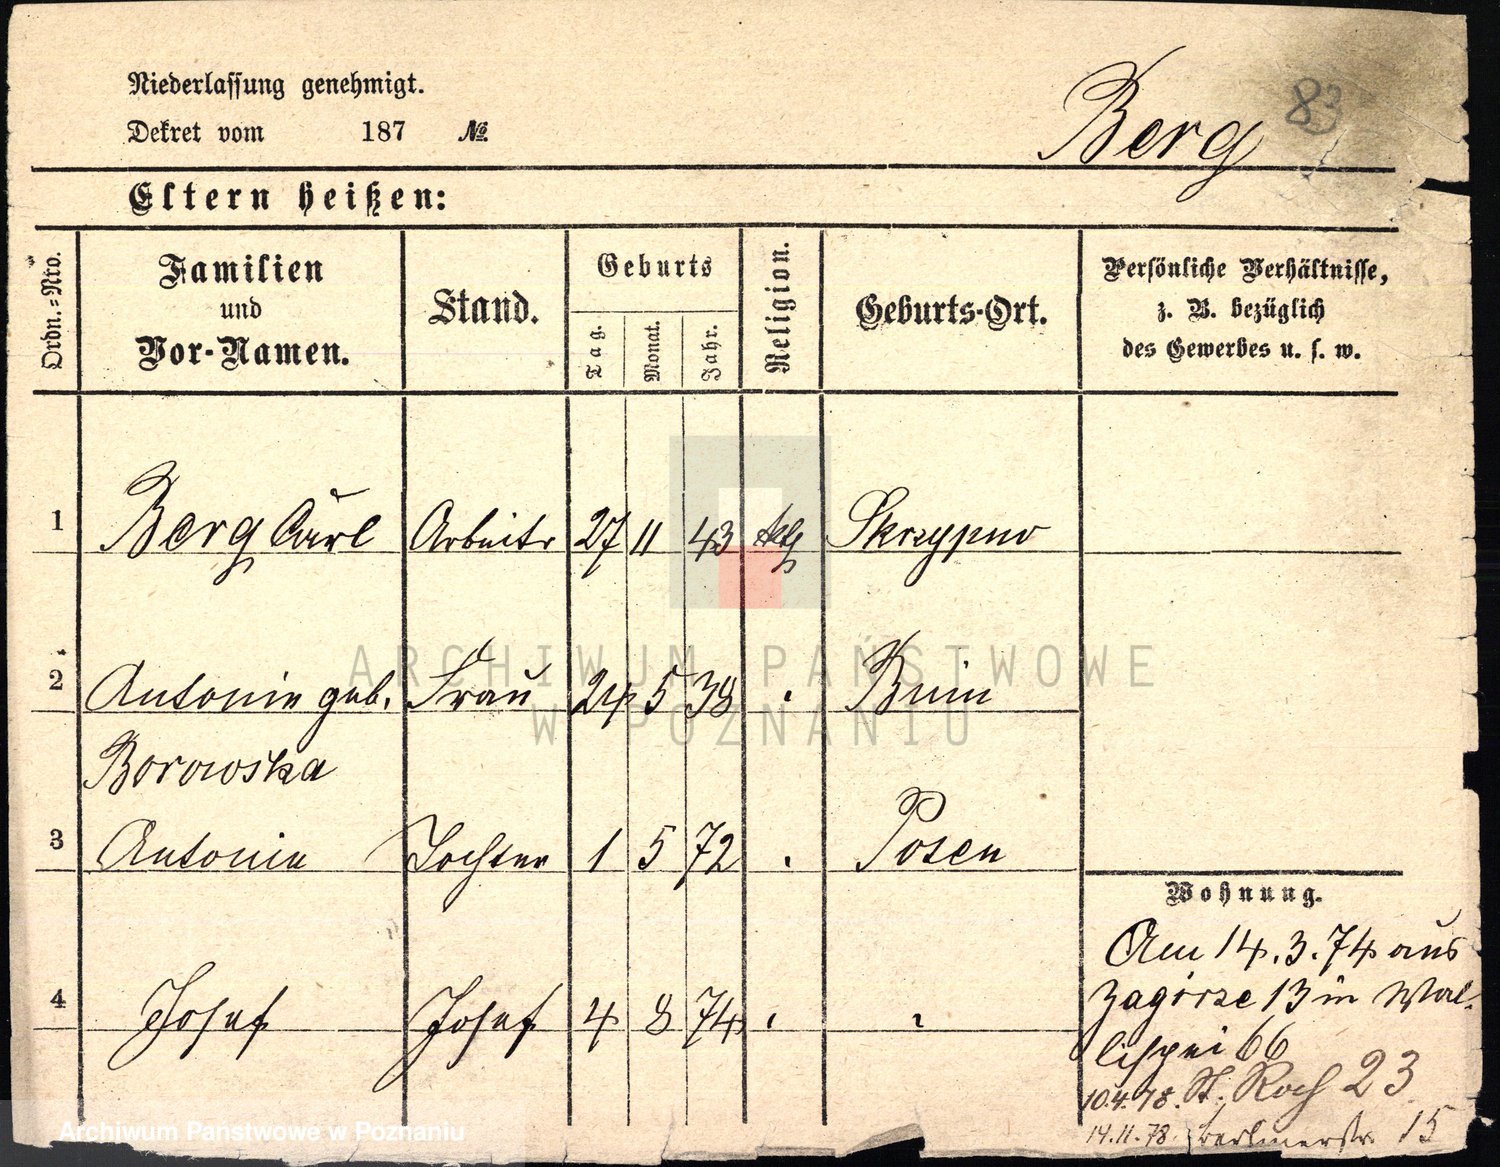 Niederlassung genehmigt.
Dekret vom 187 №
Berg
83
Eltern heißen:
Ordn.=Nro.
Familien und Vor-Namen.
Stand.
Geburts
Tag. Monat. Jahr.
Religion.
Geburts-Ort.
Persönliche Verhältnisse,
z. B. bezüglich
des Gewerbes u. s. w.
1 Berg Carl Arbeitr 27 11 43 kth Skrzypno
2 Antonie geb. Frau 24 5 38 Bnin
Borowska
3 Antonie Tochter 1 5 72 Posen
4 Josef Josef 4 8 74
Wohnung.
Am 14.3.74 aus
Zagórze 13 in Wal-
lischei 66
10.4.78. St. Roch 23
14.11.78. Berlinerstr. 15
ARCHIWUM PAŃSTWOWE
W POZNANIU
Archiwum Państwowe w Poznaniu